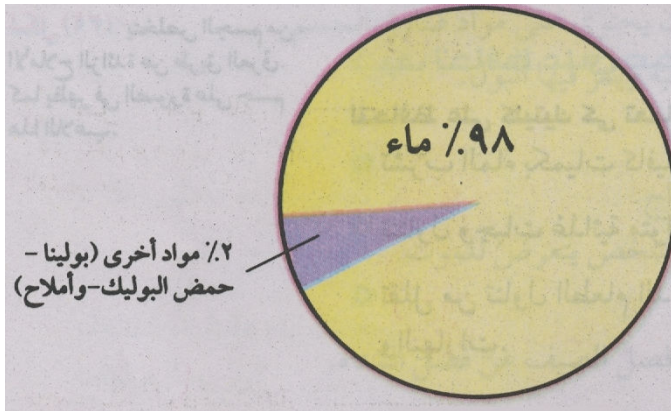 ٩٨٪ ماء
٢٪ مواد أخرى (بولينا -
حمض البوليك-وأملاح)